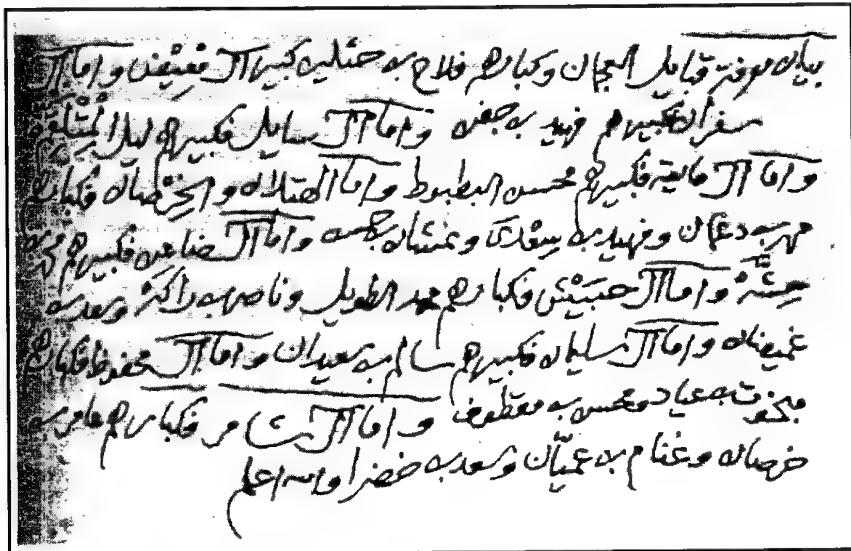 بيان معرفة قبايل العجمان وكبارهم فلاح بن حثلين كبير آل معيض واما آل
سفران فكبيرهم فهيد بن جفن واما آل سليل فكبيرهم ليل المتلقم
واما آل هادي فكبيرهم محسن البطبوط واما الهتلان والخرصان فكبارهم
مهر بن دعمان وفهيد بن سعدى وعنشان بن حمد واما آل ضاعن فكبيرهم محمد بن
حسنه واما آل حبيش فكبارهم محمد الطويل وناصر بن راكه وسعد بن
غميضان واما آل سليمان فكبيرهم سالم بن سعيدان واما آل محفوظ فكبارهم
مبخوت بن عياد ومحسن بن مقطوف واما آل شامر فكبارهم عامر بن
خرصان وغنام بن عميّان وسعد بن خضرا والله اعلم